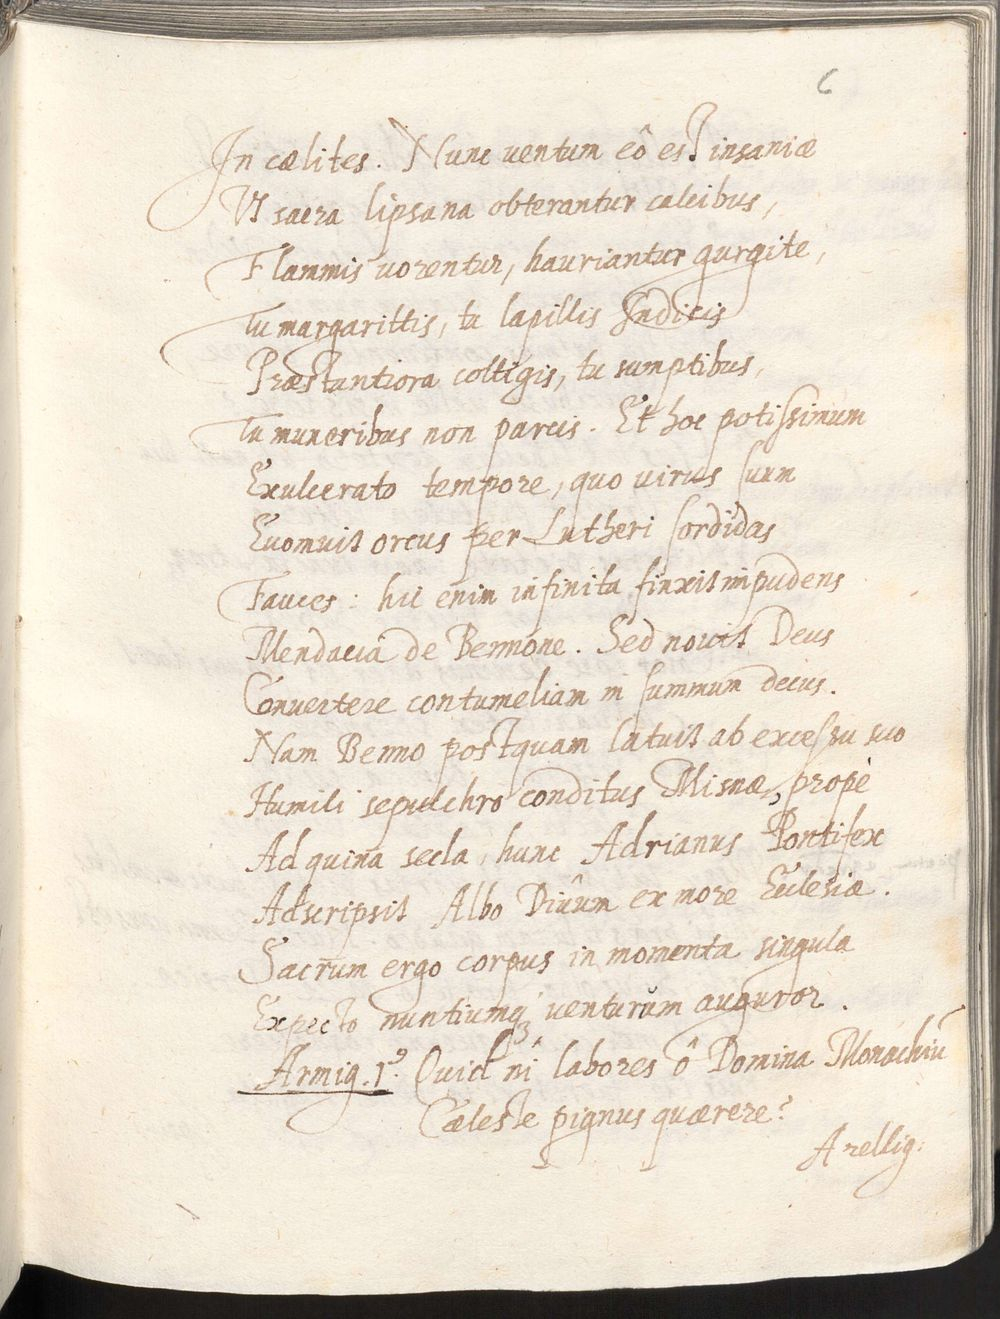 6
In cælites. Nunc ventum eô est insaniæ
Vt sacra lipsana obterantur calcibus,
Flammis uorentur, hauriantur gurgite,
Tu margarittis, tu lapillis Indicis
Præstantiora colligis, tu sumptibus,
Tu muneribus non parcis. Et hoc potissimum
Exulcerato tempore, quo virus suum
Euomuit orcus per Lutheri sordidas
Fauces: hic enim infinita finxit impudens
Mendacia de Bennone. Sed nouit Deus
Conuertere contumeliam in summum decus.
Nam Benno postquam latuit ab excessu suo
Humili sepulchro conditus Misnæ, propè
Ad quina secla, hunc Adrianus Pontifex
Adscripsit Albo Diûum ex more Ecclesiæ.
Sacrum ergo corpus in momenta singula
Expecto nuntiumq₃ venturum auguror.
Armig. 1⁹. Quid nî labores ô Domina Monachiũ
Cæleste pignus quærere?
Arellig: